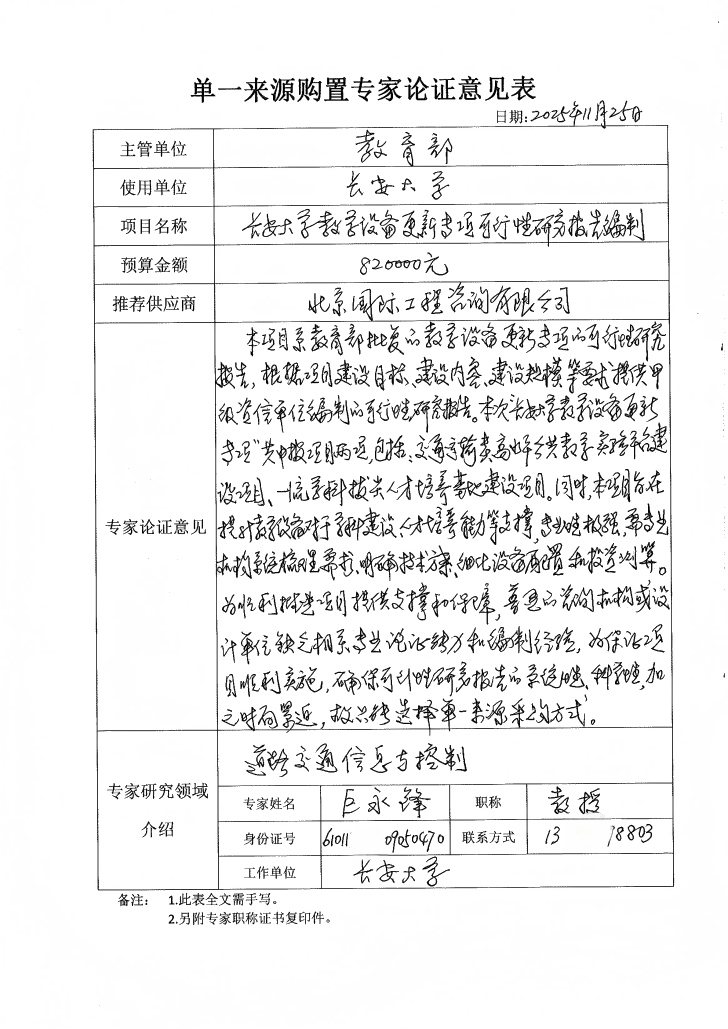 单一来源购置专家论证意见表
日期:2025年11月25日
主管单位 教育部
使用单位 长安大学
项目名称 长安大学教学设备更新专项可行性研究报告编制
预算金额 820000元
推荐供应商 北京国际工程咨询有限公司
专家论证意见
本项目系教育部批复的教学设备更新专项的可行性研究
报告,根据项目建设目标、建设内容、建设规模等要求提供甲
级资信单位编制的可行性研究报告。本次“长安大学教学设备更新
专项”共申报项目两项,包括:交通运输类高水平公共教学实验平台建
设项目、一流学科拔尖人才培养基地建设项目。同时,本项目旨在
提升教学设备对于学科建设、人才培养能力等支撑,专业性极强,需专业
机构系统梳理需求、明确技术方案、细化设备配置和投资测算。
为顺利推进项目提供支撑和保障,普通的咨询机构或设
计单位缺乏相关专业论证能力和编制经验,为保证项
目顺利实施,确保可行性研究报告的系统性、科学性,加
之时间紧迫,故只能选择单一来源采购方式。
专家研究领域
介绍
道路交通信息与控制
专家姓名 巨永锋 职称 教授
身份证号 61011 09050470 联系方式 13 18803
工作单位 长安大学
备注: 1.此表全文需手写。
2.另附专家职称证书复印件。